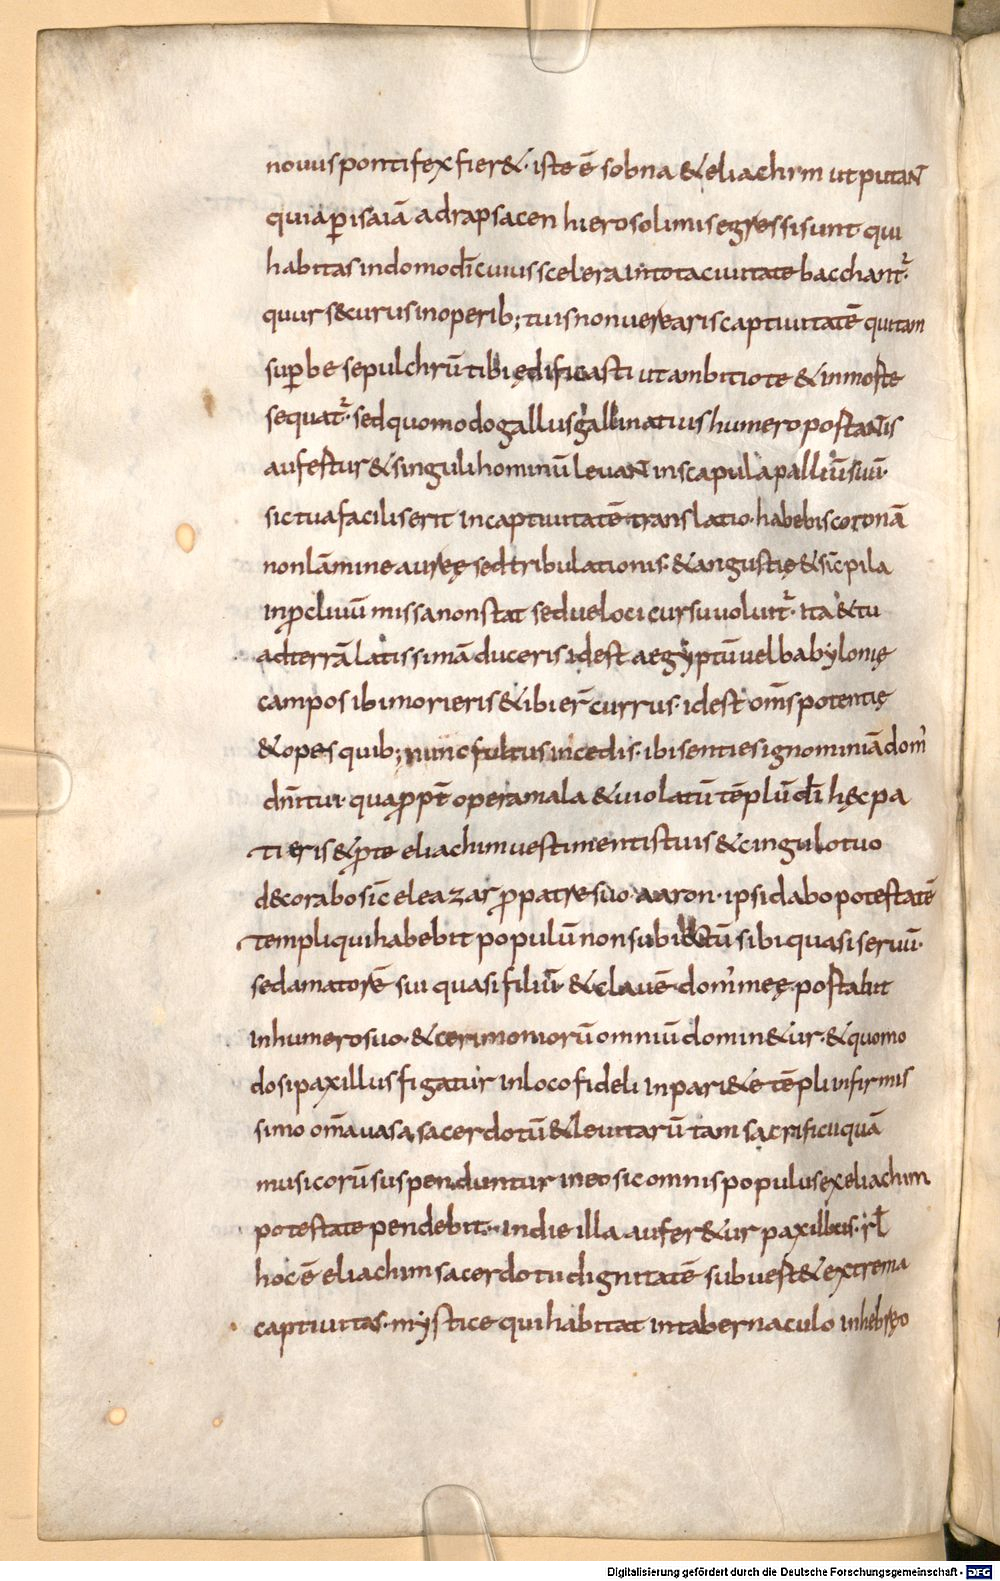 nouus pontifex fier&. iste ē sobna & eliachim ut putaNt
quia ꝑ isaiā ad rapsacen hierosolimis egressi sunt qui
habitas in domo dī cuius scelera in tota ciuitate bacchant᷑.
quur s&curus in operib; tuis non uerearis captiuitatē qui tam
suꝑbe sepulchrū tibi ędificasti ut ambitio te & in morte
sequat᷑. sed quomodo gallus gallinatius humero portaNtis
aufertur & singuli hominū leuaNt in scapula palliū suū.
sic tua facilis erit in captiuitatē translatio. habebis coronā
non lāmine aureę sed tribulationis. & angustię & sic̄ pila
in p̄cliuiū missa non stat sed ueloci cursu uoluit᷑. ita & tu
ad terrā latissimā duceris id est aegyptū uel babylonię
campos ibi morieris & ibi er̄ currus. id est om̄s potentię
& opes quib; nunc fultus incedis. ibi senties ignominiā dom̄
dn̄i tui. qua ꝓpt̄ opera mala & uiolatū tēplū dī hęc pa
tieris & p̄ te eliachim uestimentis tuis & cingulo tuo
d&corabo sic̄ eleazar ꝓ patre suo aaron. ipsi dabo potestatē
templi qui habebit populū non subiectū sibi quasi seruū.
sed amatorē sui quasi filiū. & clauē dom' meę portabit
in humero suo. & cerimoniorū omniū domin&ur. & quomo
do si paxillus figatur in loco fideli in pari&e tēpli u firmis
simo om̄a uasa sacerdotū & leuitarū tam sacrificii quā
musicorū suspenduntur in eo sic omnis populus ex eliachim
potestate pendebit. in die illa aufer&ur paxillus. rł
hoc ē eliachim sacerdotii dignitatē subuert& extrema
captiuitas. mystice qui habitat in tabernaculo in hebręo
Digitalisierung gefördert durch die Deutsche Forschungsgemeinschaft - DFG